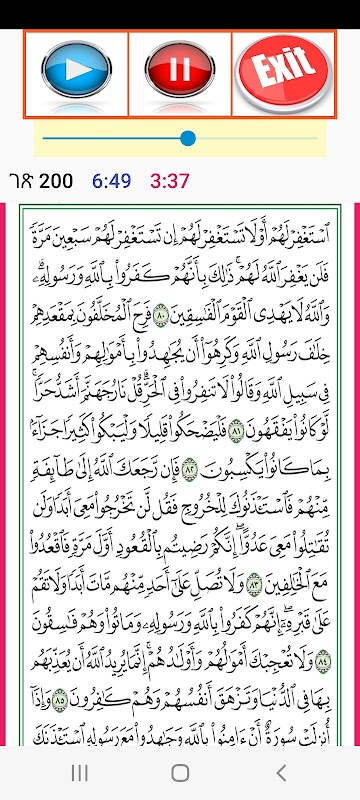 Exit
ገጽ 200 6:49 3:37
ٱسۡتَغۡفِرۡ لَهُمۡ أَوۡ لَا تَسۡتَغۡفِرۡ لَهُمۡ إِن تَسۡتَغۡفِرۡ لَهُمۡ سَبۡعِينَ مَرَّةٗ
فَلَن يَغۡفِرَ ٱللَّهُ لَهُمۡۚ ذَٰلِكَ بِأَنَّهُمۡ كَفَرُواْ بِٱللَّهِ وَرَسُولِهِۦۗ
وَٱللَّهُ لَا يَهۡدِي ٱلۡقَوۡمَ ٱلۡفَٰسِقِينَ ٨٠ فَرِحَ ٱلۡمُخَلَّفُونَ بِمَقۡعَدِهِمۡ
خِلَٰفَ رَسُولِ ٱللَّهِ وَكَرِهُوٓاْ أَن يُجَٰهِدُواْ بِأَمۡوَٰلِهِمۡ وَأَنفُسِهِمۡ
فِي سَبِيلِ ٱللَّهِ وَقَالُواْ لَا تَنفِرُواْ فِي ٱلۡحَرِّۗ قُلۡ نَارُ جَهَنَّمَ أَشَدُّ حَرّٗاۚ
لَّوۡ كَانُواْ يَفۡقَهُونَ ٨١ فَلۡيَضۡحَكُواْ قَلِيلٗا وَلۡيَبۡكُواْ كَثِيرٗا جَزَآءَۢ
بِمَا كَانُواْ يَكۡسِبُونَ ٨٢ فَإِن رَّجَعَكَ ٱللَّهُ إِلَىٰ طَآئِفَةٖ
مِّنۡهُمۡ فَٱسۡتَـٔۡذَنُوكَ لِلۡخُرُوجِ فَقُل لَّن تَخۡرُجُواْ مَعِيَ أَبَدٗا وَلَن
تُقَٰتِلُواْ مَعِيَ عَدُوًّاۖ إِنَّكُمۡ رَضِيتُم بِٱلۡقُعُودِ أَوَّلَ مَرَّةٖ فَٱقۡعُدُواْ
مَعَ ٱلۡخَٰلِفِينَ ٨٣ وَلَا تُصَلِّ عَلَىٰٓ أَحَدٖ مِّنۡهُم مَّاتَ أَبَدٗا وَلَا تَقُمۡ
عَلَىٰ قَبۡرِهِۦٓۖ إِنَّهُمۡ كَفَرُواْ بِٱللَّهِ وَرَسُولِهِۦ وَمَاتُواْ وَهُمۡ فَٰسِقُونَ
٨٤ وَلَا تُعۡجِبۡكَ أَمۡوَٰلُهُمۡ وَأَوۡلَٰدُهُمۡۚ إِنَّمَا يُرِيدُ ٱللَّهُ أَن يُعَذِّبَهُم
بِهَا فِي ٱلدُّنۡيَا وَتَزۡهَقَ أَنفُسُهُمۡ وَهُمۡ كَٰفِرُونَ ٨٥ وَإِذَآ
أُنزِلَتۡ سُورَةٌ أَنۡ ءَامِنُواْ بِٱللَّهِ وَجَٰهِدُواْ مَعَ رَسُولِهِ ٱسۡتَـٔۡذَنَكَ